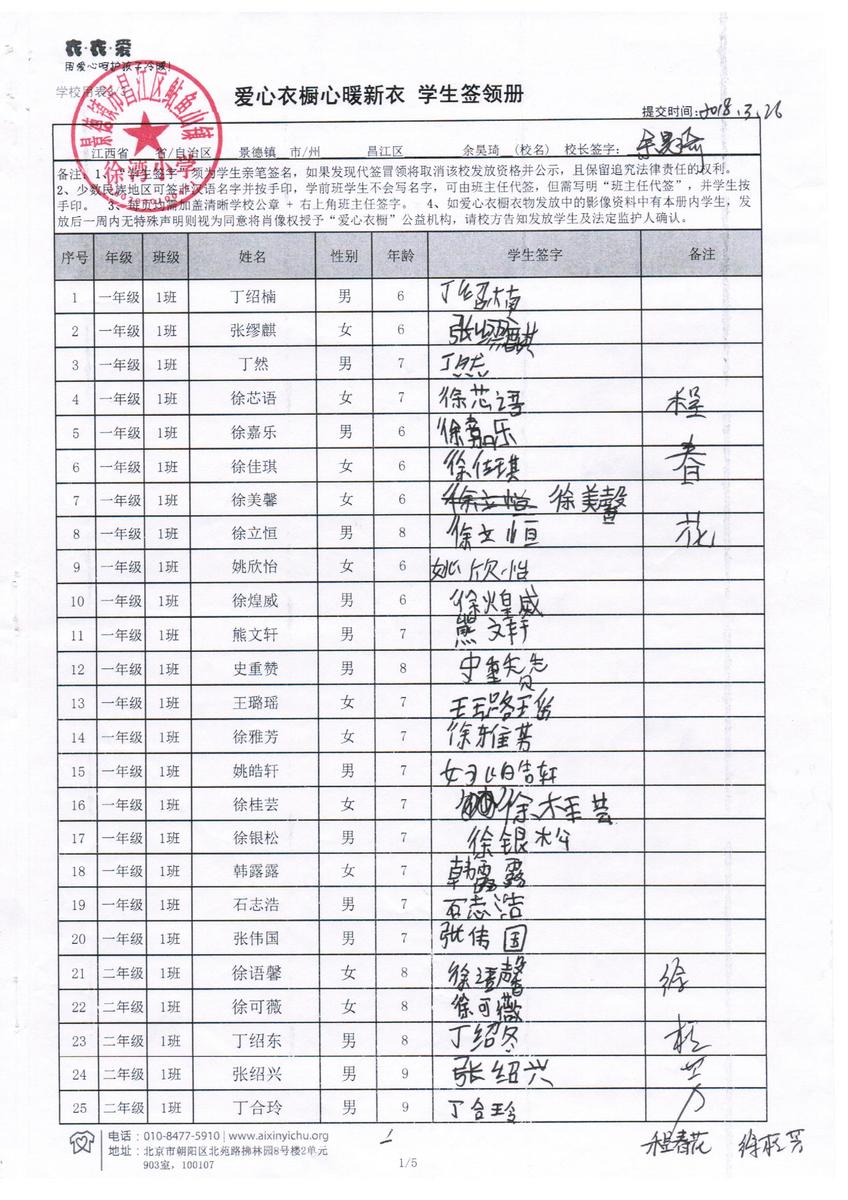 衣·衣·爱
用爱心呵护孩子冷暖!
学校用表
景德镇市昌江区鲇鱼山镇
徐湾小学
爱心衣橱心暖新衣 学生签领册
提交时间: 2018.3.26
江西省 省/自治区 景德镇 市/州 昌江区 余昊琦 (校名) 校长签字:
备注: 1、"学生签字"须为学生亲笔签名,如果发现代签冒领将取消该校发放资格并公示,且保留追究法律责任的权利。
2、少数民族地区可签非汉语名字并按手印,学前班学生不会写名字,可由班主任代签,但需写明"班主任代签",并学生按
手印。 3、每页均需加盖清晰学校公章 + 右上角班主任签字。 4、如爱心衣橱衣物发放中的影像资料中有本册内学生,发
放后一周内无特殊声明则视为同意将肖像权授予"爱心衣橱"公益机构,请校方告知发放学生及法定监护人确认。
序号 年级 班级 姓名 性别 年龄 学生签字 备注
1 一年级 1班 丁绍楠 男 6 丁绍楠
2 一年级 1班 张缪麒 女 6 张缪麒
3 一年级 1班 丁然 男 7 丁然
4 一年级 1班 徐芯语 女 7 徐芯语 程
5 一年级 1班 徐嘉乐 男 6 徐嘉乐
6 一年级 1班 徐佳琪 女 6 徐佳琪 春
7 一年级 1班 徐美馨 女 6 徐立恒 徐美馨
8 一年级 1班 徐立恒 男 8 徐立恒 花
9 一年级 1班 姚欣怡 女 6 姚欣怡
10 一年级 1班 徐煌威 男 6 徐煌威
11 一年级 1班 熊文轩 男 7 熊文轩
12 一年级 1班 史重赞 男 8 史重赞
13 一年级 1班 王璐瑶 女 7 王璐瑶
14 一年级 1班 徐雅芳 女 7 徐雅芳
15 一年级 1班 姚皓轩 男 7 姚皓轩
16 一年级 1班 徐桂芸 女 7 徐桂芸
17 一年级 1班 徐银松 男 7 徐银松
18 一年级 1班 韩露露 女 7 韩露露
19 一年级 1班 石志浩 男 7 石志浩
20 一年级 1班 张伟国 男 7 张伟国
21 二年级 1班 徐语馨 女 8 徐语馨 徐
22 二年级 1班 徐可薇 女 8 徐可薇
23 二年级 1班 丁绍东 男 8 丁绍冬
24 二年级 1班 张绍兴 男 9 张绍兴
25 二年级 1班 丁合玲 男 9 丁合玲
电话: 010-8477-5910 | www.aixinyichu.org
地址: 北京市朝阳区北苑路拂林园8号楼2单元
903室, 100107
1/5
程春花